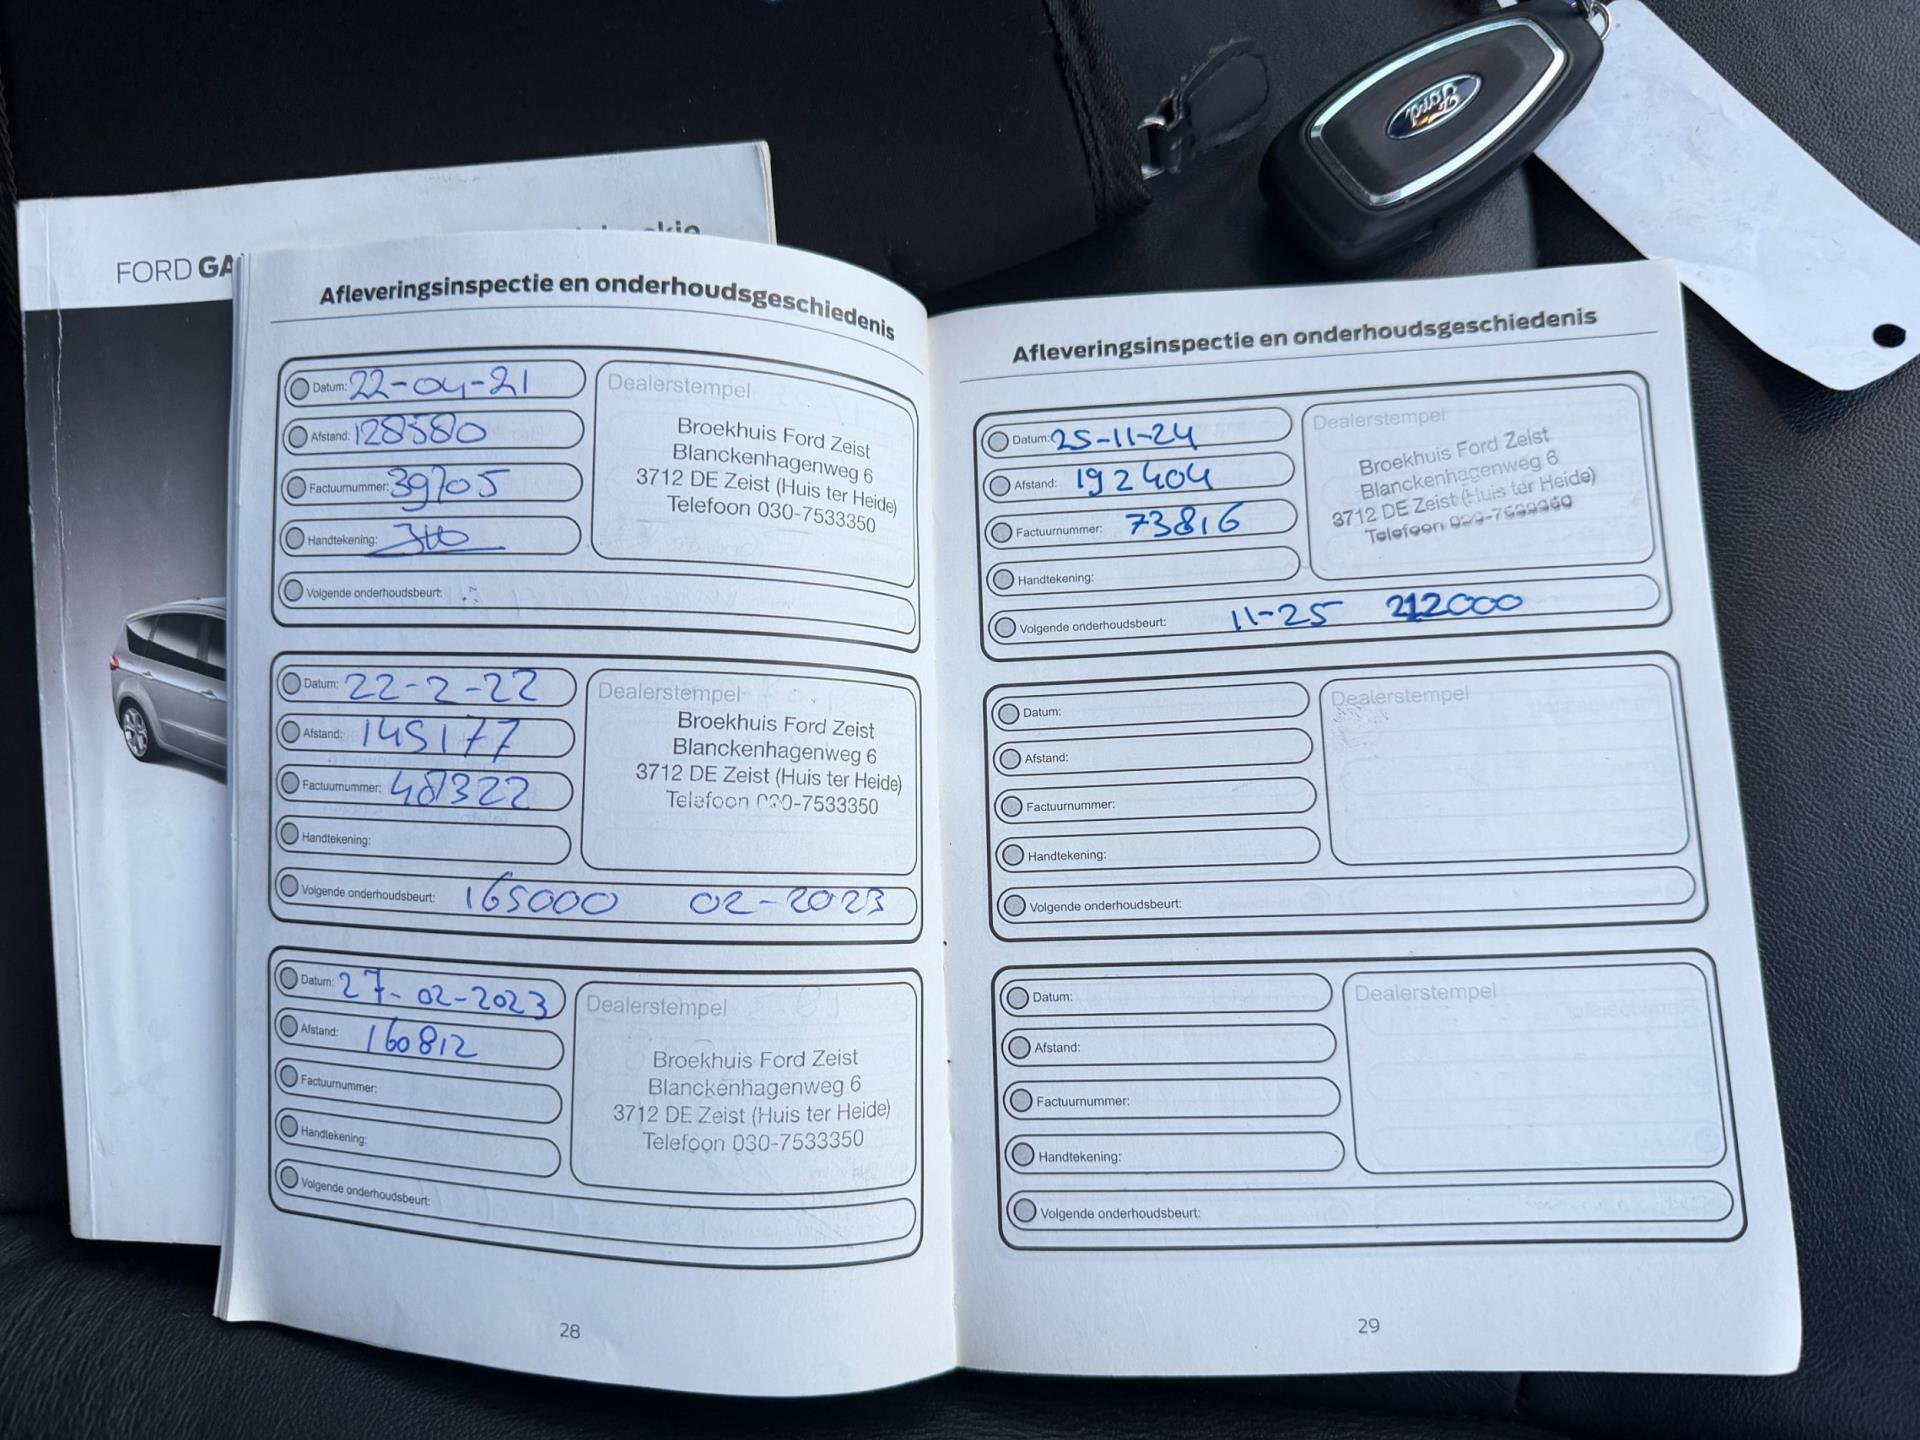 Ford
FORD GA
Afleveringsinspectie en onderhoudsgeschiedenis
Datum: 22-04-21
Afstand: 128580
Factuurnummer: 39705
Handtekening:
Volgende onderhoudsbeurt:
Dealerstempel
Broekhuis Ford Zeist
Blanckenhagenweg 6
3712 DE Zeist (Huis ter Heide)
Telefoon 030-7533350
Datum: 22-2-22
Afstand: 145177
Factuurnummer: 48322
Handtekening:
Volgende onderhoudsbeurt: 165000 02-2023
Dealerstempel
Broekhuis Ford Zeist
Blanckenhagenweg 6
3712 DE Zeist (Huis ter Heide)
Telefoon 030-7533350
Datum: 27-02-2023
Afstand: 160812
Factuurnummer:
Handtekening:
Volgende onderhoudsbeurt:
Dealerstempel
Broekhuis Ford Zeist
Blanckenhagenweg 6
3712 DE Zeist (Huis ter Heide)
Telefoon 030-7533350
28
Afleveringsinspectie en onderhoudsgeschiedenis
Datum: 25-11-24
Afstand: 192404
Factuurnummer: 73816
Handtekening:
Volgende onderhoudsbeurt: 11-25 212000
Dealerstempel
Broekhuis Ford Zeist
Blanckenhagenweg 6
3712 DE Zeist (Huis ter Heide)
Telefoon
Datum:
Afstand:
Factuurnummer:
Handtekening:
Volgende onderhoudsbeurt:
Dealerstempel
Datum:
Afstand:
Factuurnummer:
Handtekening:
Volgende onderhoudsbeurt:
Dealerstempel
29